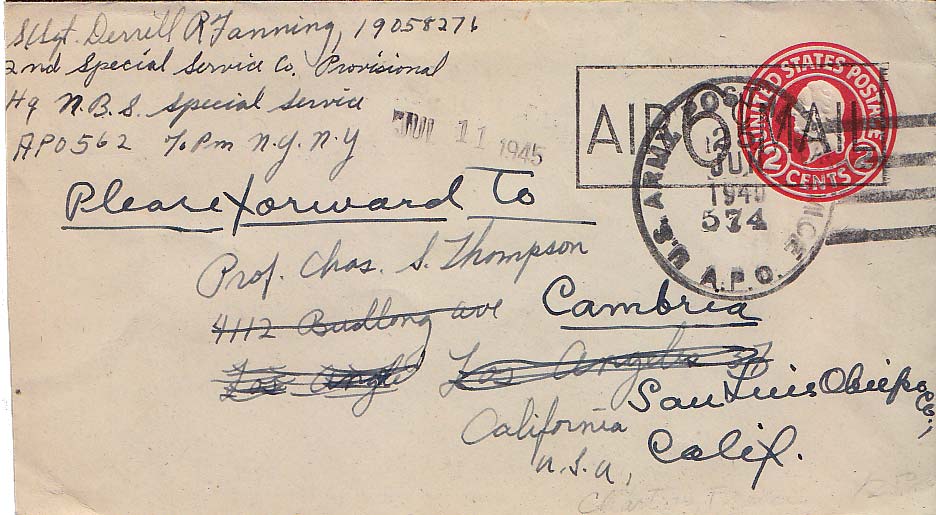 S/Sgt. Derrell R Fanning, 19058276
2nd Special Service Co. Provisional
Hq N.B.S. Special Service
APO 562 c/o Pm N.Y. N.Y
JUN 11 1945
UNITED STATES POSTAGE
2 CENTS 2
AIR 6¢ MAIL
U.S. ARMY POSTAL SERVICE
JUN
194
574
A.P.O.
Please forward To
Prof. Chas. S. Thompson
4112 Budlong ave
Cambria
Los Angel
Los Angeles 37
San Luis Obispo Co.,
California
Calif.
U.S.A,